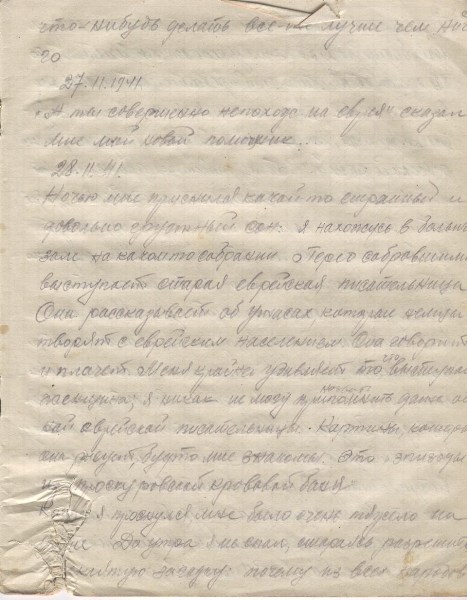 что-нибудь делать все-же лучше чем ни
го
27.11.1941.
"А ты совершенно непохож на еврея" сказал
мне мой новый помощник.
28.11.41.
Ночью мне приснился какой то странный и
довольно грустный сон: я нахожусь в большом
зале на каком то собрании. Перед собравшими
выступает старая еврейская писательница
Она рассказывает об ужасах, которые немцы
творят с еврейским населением. Она говорит
и плачет. Меня крайне удивляет то, что
я никак не могу припомнить даже
еврейской писательницы. Картины, которые
она рисует, будто мне знакомы. Это эпизоды
из проскуровской кровавой бани.
я проснулся, мне было очень тяжело на
До утра я не спал, стараясь разрешить
загадку: почему из всех народов